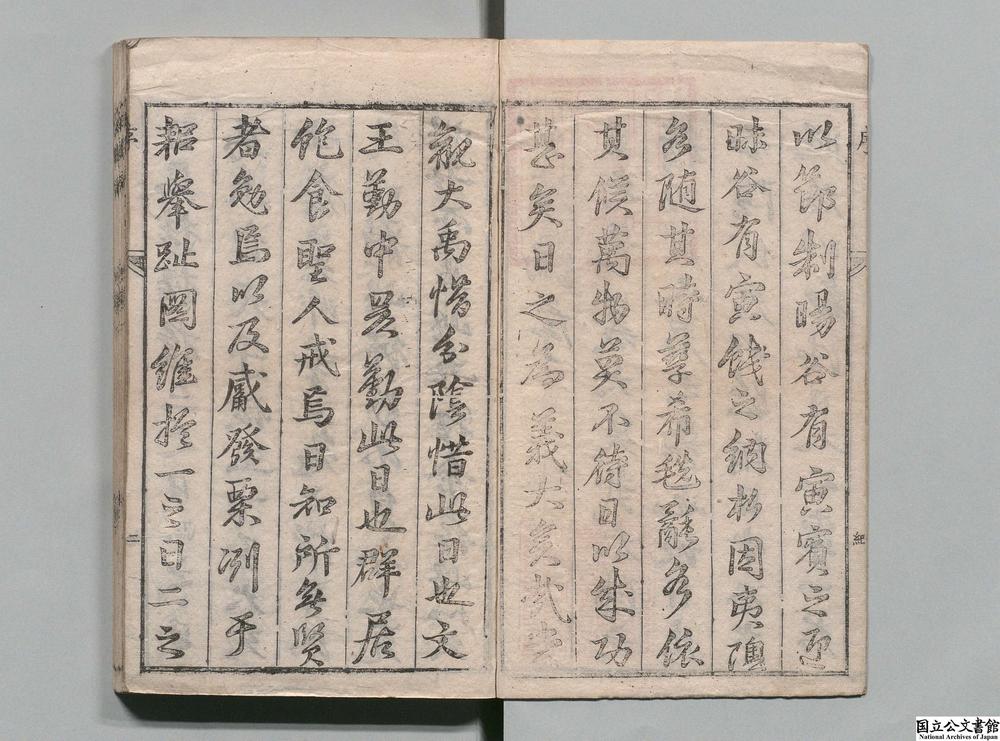 序
以節制暘谷有寅賓之迎
昧谷有寅餞之納析因夷隩
各随其時孳希毨氄各依
其候萬物莫不待日以成功
甚矣日之為義大矣哉嘗
觀大禹惜分陰惜此日也文
王勤中昃勤此日也群居
飽食聖人戒焉日知所無賢
者勉焉以及觱發栗冽于
耜舉趾図維於一之日二之
序
二
国立公文書館
National Archives of Japan